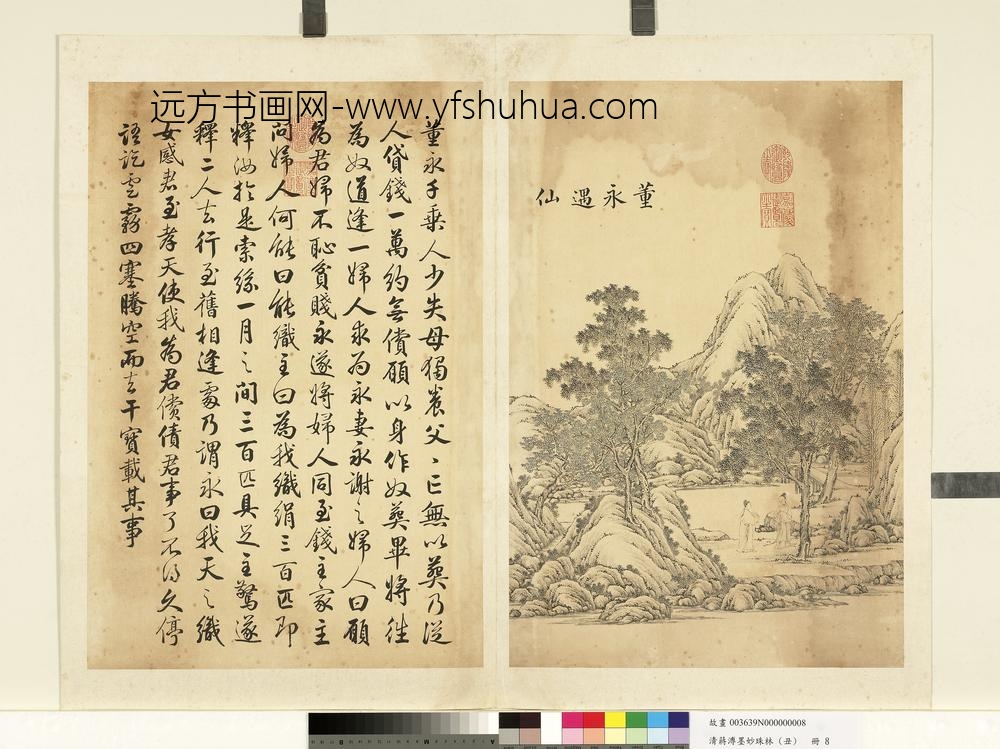 远方书画网-www.yfshuhua.com
董永遇仙
董永千乗人少失母獨养父〻亡無以葬乃従
人貸錢一萬約無償願以身作奴葬畢將往
為奴道逢一婦人求為永妻永謝之婦人曰願
為君婦不恥貧賤永遂将婦人同至錢主家主
問婦人何能曰能織主曰為我織絹三百匹即
釋汝於是索絲一月之間三百匹具足主驚遂
釋二人去行至舊相逢處乃謂永曰我天之織
女感君至孝天使我為君償債君事了不得久停
語訖雲霧四塞騰空而去干寳載其事
故畫 003639N000000008
清蔣溥墨妙珠林（丑） 冊 8